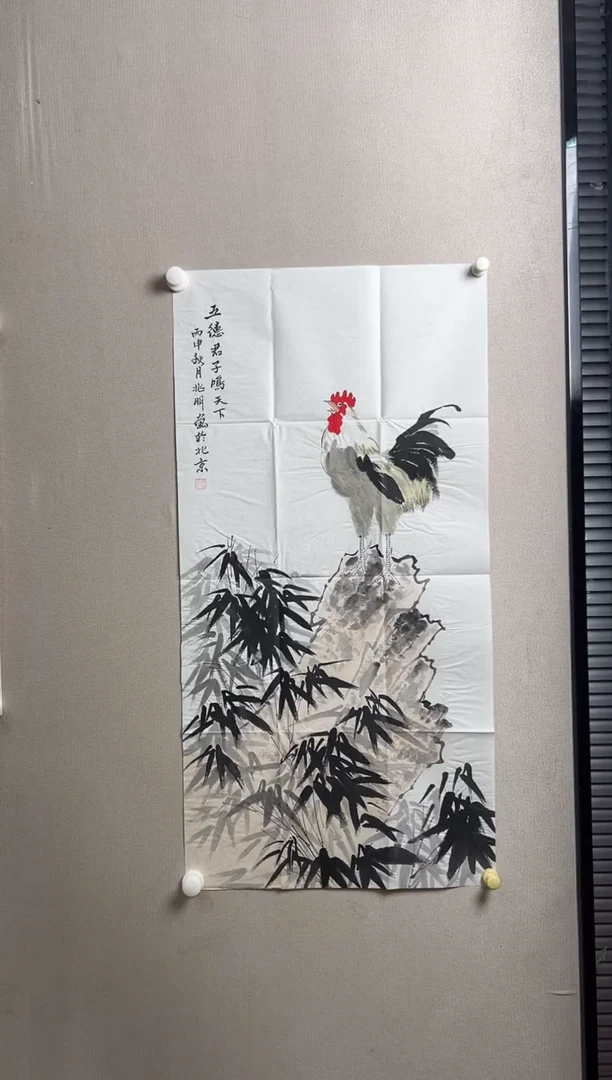 五德君子鳴天下
丙申秋月兆明画於北京